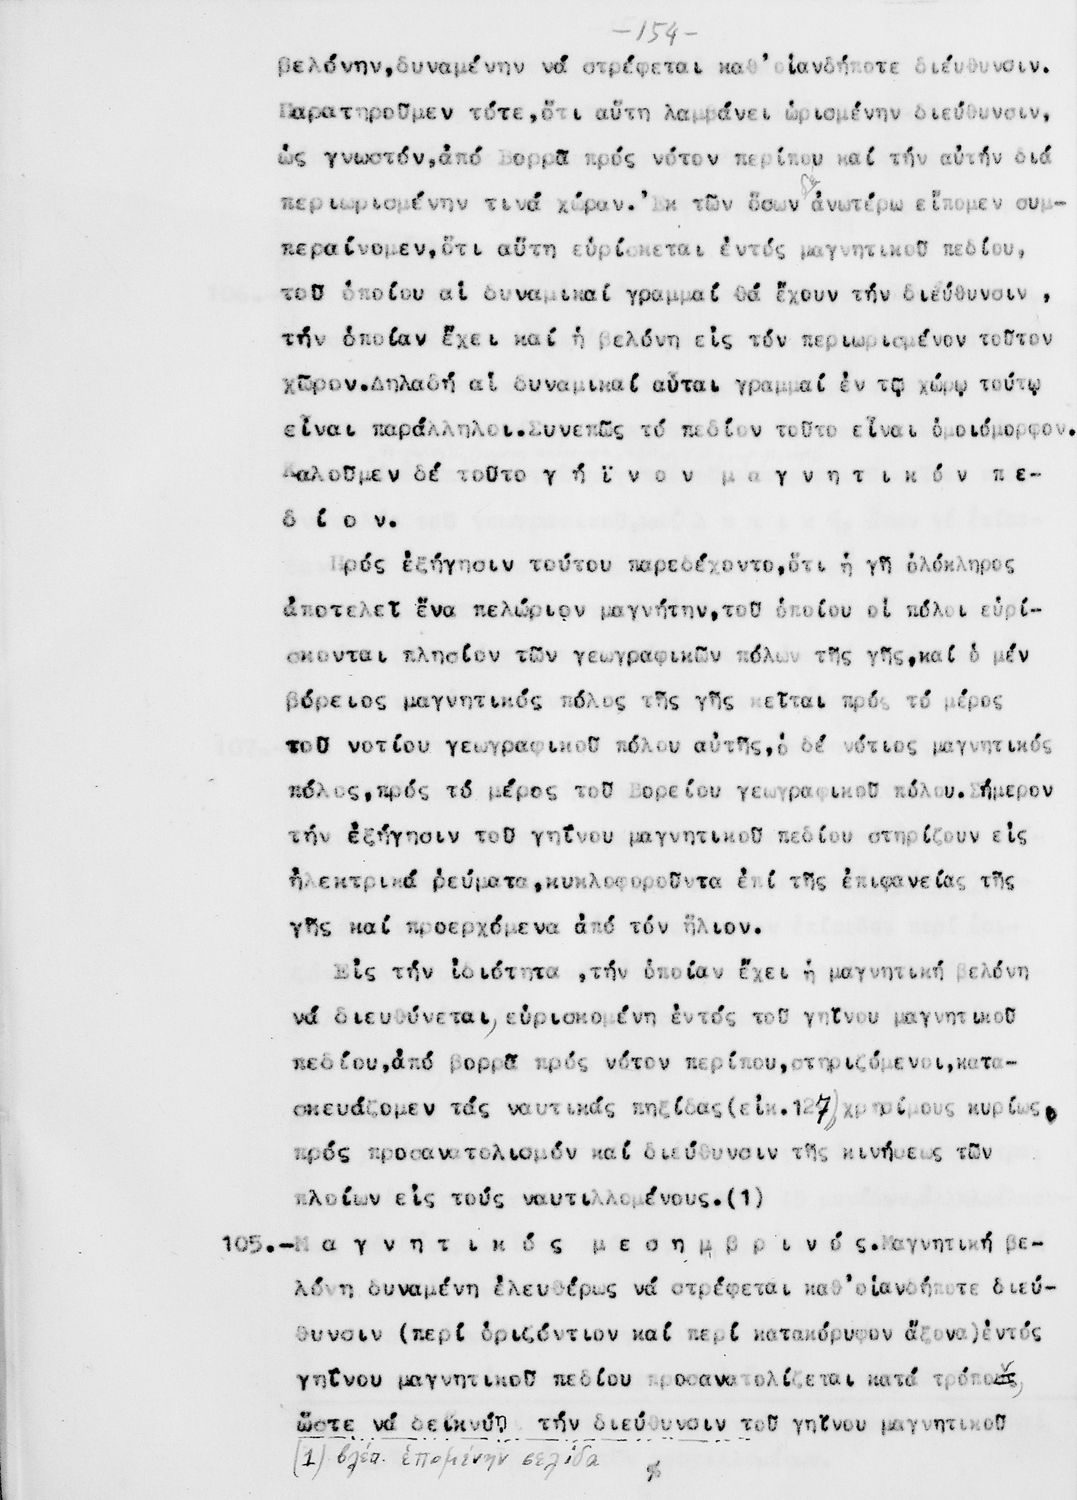 -154-
βελόνην,δυναμένην νά στρέφεται καθ'οἱανδήποτε διεύθυνσιν.
Παρατηροῦμεν τότε,ὅτι αὕτη λαμβάνει ὡρισμένην διεύθυνσιν,
ὡς γνωστόν,ἀπό Βορρᾶ πρός νότον περίπου καί τήν αὐτήν διά
περιωρισμένην τινά χώραν.'Εκ τῶν ὅσων ἀνωτέρω εἴπομεν συμ-
περαίνομεν,ὅτι αὕτη εὑρίσκεται ἐντός μαγνητικοῦ πεδίου,
τοῦ ὁποίου αἱ δυναμικαί γραμμαί θά ἔχουν τήν διεύθυνσιν ,
τήν ὁποίαν ἔχει καί ἡ βελόνη εἰς τόν περιωρισμένον τοῦτον
χῶρον.Δηλαδή αἱ δυναμικαί αὗται γραμμαί ἐν τῷ χώρῳ τούτῳ
εἶναι παράλληλοι.Συνεπῶς τό πεδίον τοῦτο εἶναι ὁμοιόμορφον.
Καλοῦμεν δέ τοῦτο γ ή ϊ ν ο ν μ α γ ν η τ ι κ ό ν π ε-
δ ί ο ν.
Πρός ἐξήγησιν τούτου παρεδέχοντο,ὅτι ἡ γῆ ὁλόκληρος
ἀποτελεῖ ἕνα πελώριον μαγνήτην,τοῦ ὁποίου οἱ πόλοι εὑρί-
σκονται πλησίον τῶν γεωγραφικῶν πόλων τῆς γῆς,καί ὁ μέν
βόρειος μαγνητικός πόλος τῆς γῆς κεῖται πρός τό μέρος
τοῦ νοτίου γεωγραφικοῦ πόλου αὐτῆς,ὁ δέ νότιος μαγνητικός
πόλος,πρός τό μέρος τοῦ Βορείου γεωγραφικοῦ πόλου.Σήμερον
τήν ἐξήγησιν τοῦ γηΐνου μαγνητικοῦ πεδίου στηρίζουν εἰς
ἠλεκτρικά ῥεύματα,κυκλοφοροῦντα ἐπί τῆς ἐπιφανείας τῆς
γῆς καί προερχόμενα ἀπό τόν ἥλιον.
Εἰς τήν ἰδιότητα ,τήν ὁποίαν ἔχει ἡ μαγνητική βελόνη
νά διευθύνεται, εὑρισκομένη ἐντός τοῦ γηΐνου μαγνητικοῦ
πεδίου,ἀπό βορρᾶ πρός νότον περίπου,στηριζόμενοι,κατα-
σκευάζομεν τάς ναυτικάς πηξίδας(εἰκ.127),χρησίμους κυρίως,
πρός προσανατολισμόν καί διεύθυνσιν τῆς κινήσεως τῶν
πλοίων εἰς τούς ναυτιλλομένους.(1)
105.-Μ α γ ν η τ ι κ ό ς μ ε σ η μ β ρ ι ν ό ς.Μαγνητική βε-
λόνη δυναμένη ἐλευθέρως νά στρέφεται καθ'οἱανδήποτε διεύ-
θυνσιν (περί ὁριζόντιον καί περί κατακόρυφον ἄξονα)ἐντός
γηΐνου μαγνητικοῦ πεδίου προσανατολίζεται κατά τρόπον,
ὥστε νά δεικνύῃ τήν διεύθυνσιν τοῦ γηΐνου μαγνητικοῦ
(1) βλέπ. ἑπομένην σελίδα